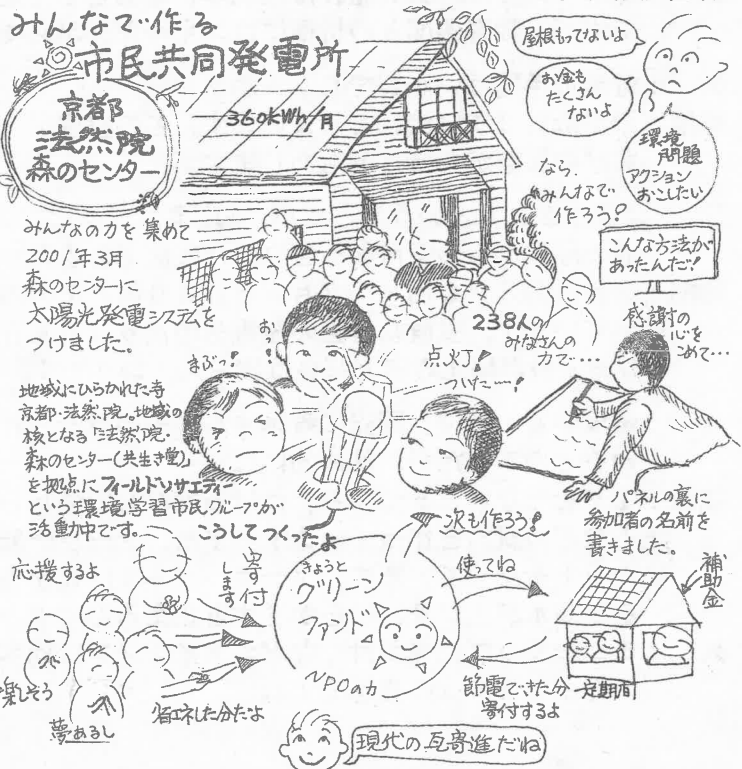 みんなで作る
市民共同発電所
京都
法然院
森のセンター
360kWh/月
屋根もってないよ
お金も
たくさん
ないよ
環境
問題
アクション
おこしたい
なら、
みんなで
作ろう!
こんな方法が
あったんだ!
みんなの力を集めて
2001年3月
森のセンターに
太陽光発電システムを
つけました。
238人の
みなさんの
力で…
点灯!
ついたー!
おっ!
まぶっ!
感謝の
心を
こめて…
地域にひらかれた寺
京都・法然院。地域の
核となる「法然院・
森のセンター(共生き堂)」
を拠点にフィールドソサエティー
という環境学習市民グループが
活動中です。
パネルの裏に
参加者の名前を
書きました。
こうしてつくったよ
次も作ろう!
応援するよ
寄付
します
きょうと
グリーン
ファンド
NPOの力
使ってね
補助金
節電できた分
寄付するよ
一定期間
楽しそう
夢あるし
省エネした分だよ
現代の瓦寄進だね